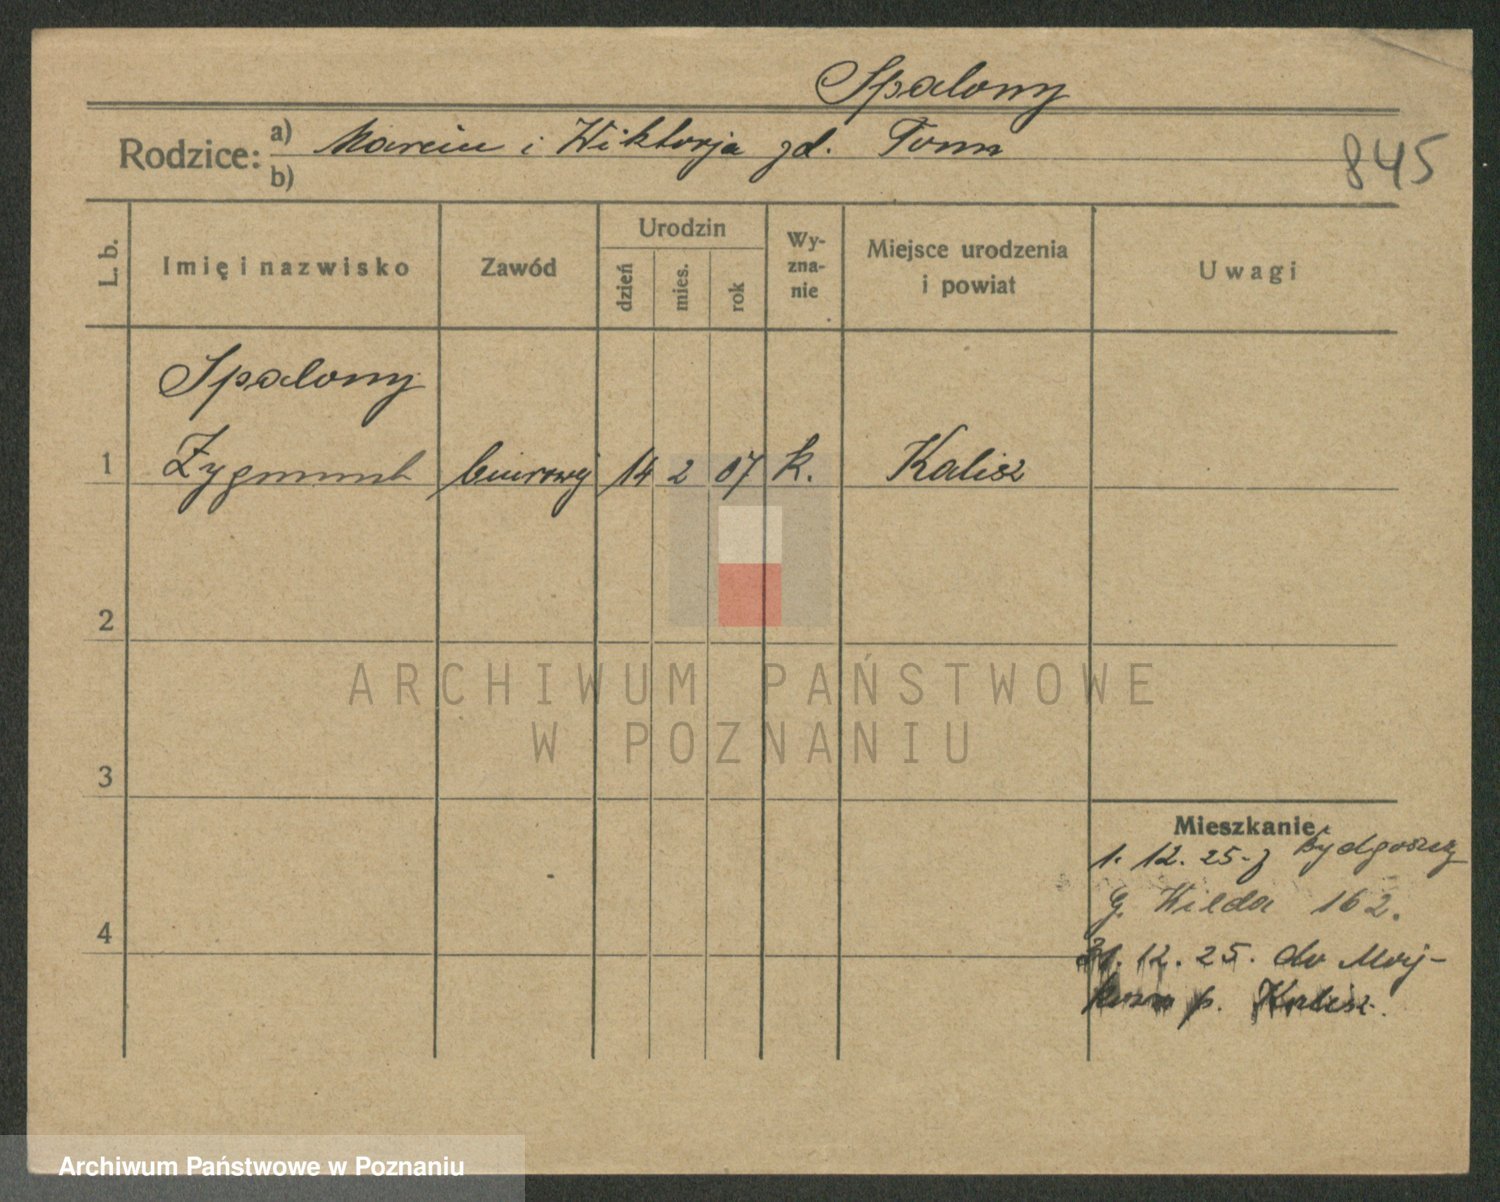 Spalony
Rodzice: a) Marcin i Wiktorja zd. Tomm
b)
845
L. b. Imię i nazwisko Zawód Urodzin dzień mies. rok Wy-zna-nie Miejsce urodzenia i powiat Uwagi
Spalony
1 Zygmunt biurowy 14 2 07 k. Kalisz
2
ARCHIWUM PAŃSTWOWE
W POZNANIU
3
Mieszkanie
1. 12. 25 - z Bydgoszczy
4 G. Wilda 162.
31. 12. 25. do
p. Kalisz.
Archiwum Państwowe w Poznaniu